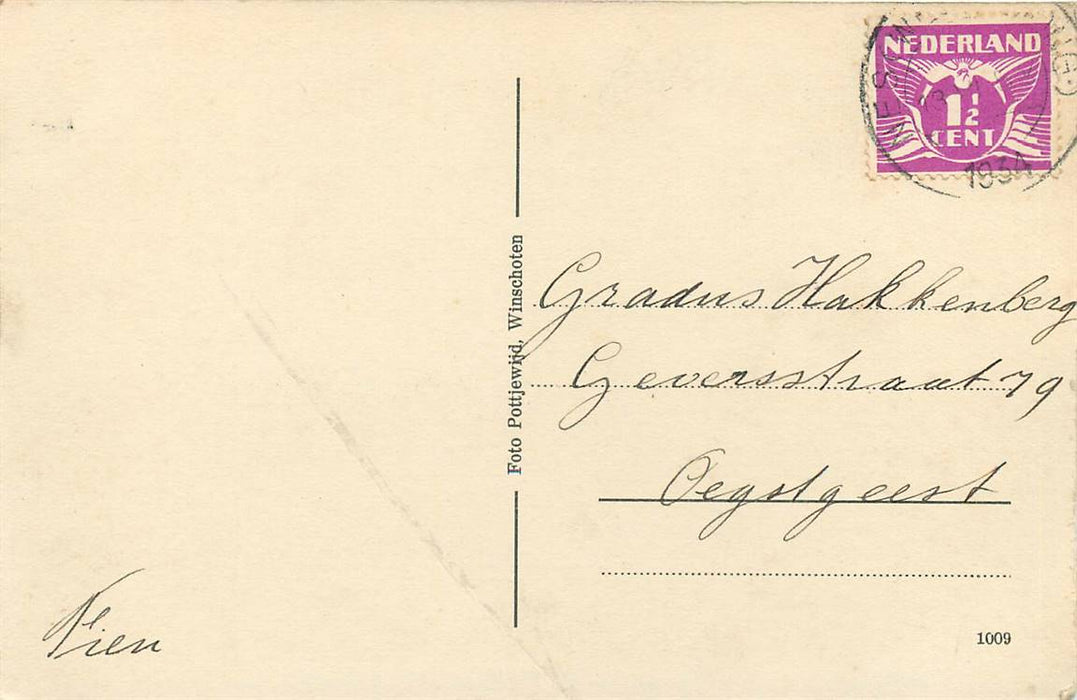 NEDERLAND
1½
CENT
1934
Foto Pottjewijd, Winschoten
Gradus Hakkenberg
Geversstraat 79
Oegstgeest
Fien
1009